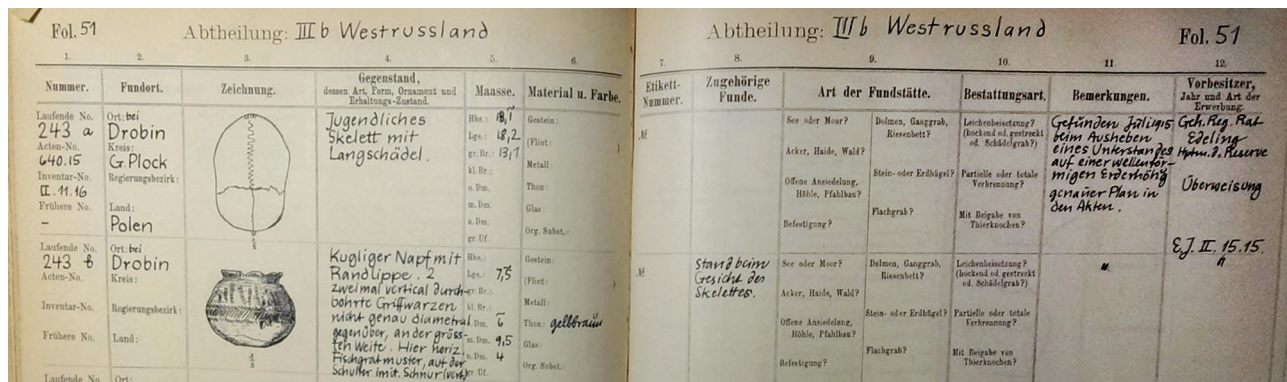 Fol. 51
Abtheilung: III b Westrussland
1. 2. 3. 4. 5. 6.
Nummer. Fundort. Zeichnung. Gegenstand, Maasse. Material u. Farbe.
dessen Art, Form, Ornament und
Erhaltungs-Zustand.
Laufende No.
243 a
Acten-No.
640.15
Inventar-No.
II.11.16
Frühere No.
-
Ort: bei
Drobin
Kreis:
G Plock
Regierungsbezirk:
Land:
Polen
Jugendliches
Skelett mit
Langschädel.
Hhe.:
Lge.: 18,2
gr. Br.: 13,1
kl. Br.:
o. Dm.
m. Dm.
u. Dm.
gr. Uf.
Gestein:
(Flint: )
Metall:
Thon:
Glas:
Org. Subst.:
Laufende No.
243 b
Acten-No.
Inventar-No.
Frühere No.
Laufende No.
Ort: bei
Drobin
Kreis:
Regierungsbezirk:
Land:
Ort:
Kugliger Napf mit
Randlippe. 2
zweimal vertical durch-
bohrte Griffwarzen
nicht genau diametral
gegenüber, an der gröss-
ten Weite. Hier horiz.
Fischgratmuster, auf der
Schulter imit. Schnur (vert.)
Hhe.:
Lge.: 7,5
gr. Br.:
kl. Br.:
Dm. 6
m. Dm. 9,5
u. Dm. 4
gr. Uf.
Gestein:
(Flint: )
Metall:
Thon: gelbbraun
Glas:
Org. Subst.:
Abtheilung: III b Westrussland
Fol. 51
7. 8. 9. 10. 11. 12.
Etikett-
Nummer.
Zugehörige
Funde.
Art der Fundstätte.
Bestattungsart.
Bemerkungen.
Vorbesitzer,
Jahr und Art der
Erwerbung.
See oder Moor?
Acker, Haide, Wald?
Offene Ansiedelung,
Höhle, Pfahlbau?
Befestigung?
Dolmen, Ganggrab,
Riesenbett?
Stein- oder Erdhügel?
Flachgrab?
Leichenbeisetzung?
(hockend od. gestreckt
od. Schädelgrab?)
Partielle oder totale
Verbrennung?
Mit Beigabe von
Thierknochen?
Gefunden Juli 1915
beim Ausheben
eines Unterstandes
auf einer wellenför-
migen Erderhöhg
genauer Plan in
den Akten.
Geh. Reg. Rat
Edeling
Hptm. d. Reserve
Überweisung
E.J. II. 15.15.
Stand beim
Gesicht des
Skelettes.
See oder Moor?
Acker, Haide, Wald?
Offene Ansiedelung,
Höhle, Pfahlbau?
Befestigung?
Dolmen, Ganggrab,
Riesenbett?
Stein- oder Erdhügel?
Flachgrab?
Leichenbeisetzung?
(hockend od. gestreckt
od. Schädelgrab?)
Partielle oder totale
Verbrennung?
Mit Beigabe von
Thierknochen?
"
"